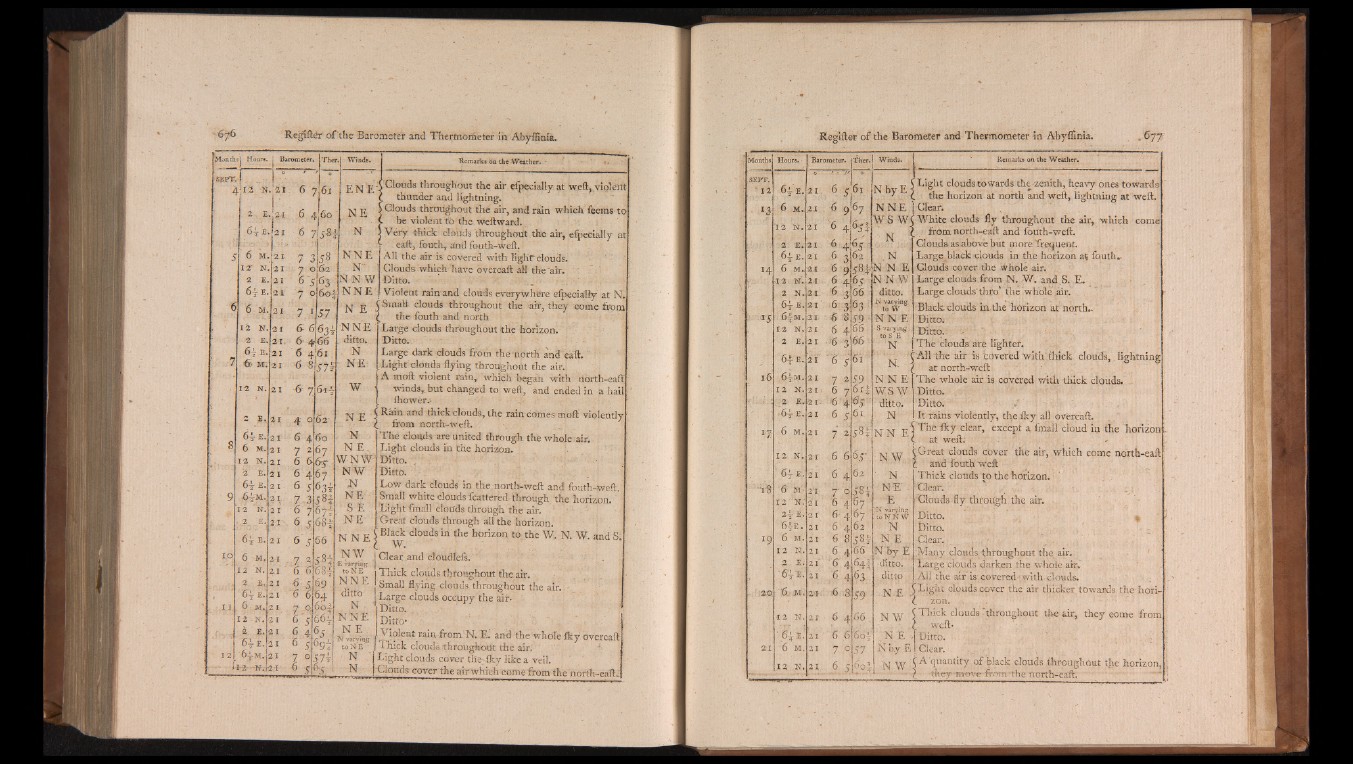 676 Regiſter of the Barometer and Thermometer in Abyſſinia.
Months Hours. Barometer. Ther. Winds. Remarks on the Weather.
SEPT.
4 12 N. 21 6 7 61 E N E Clouds throughout the air eſpecially at weſt, violent
thunder and lightning.
2 E. 21 6 4 60 N E Clouds throughout the air, and rain which ſeems to
be violent to the weſtward.
6½ E. 21 6 7 58½ N Very thick clouds throughout the air, eſpecially at
eaſt, ſouth, and ſouth-weſt.
5 6 M. 21 7 3 58 N N E All the air is covered with light clouds.
12 N. 21 7 0 62 N Clouds which have overcaſt all the air.
2 E. 21 6 5 63 N N W Ditto.
6½ E. 21 7 0 60½ N N E Violent rain and clouds everywhere eſpecially at N.
6 6 M. 21 7 1 57 N E Small clouds throughout the air, they come from
the ſouth and north
12 N. 21 6 6 63½ N N E Large clouds throughout the horizon.
2 E. 21 6 4 66 ditto. Ditto.
6½ E. 21 6 4 61 N Large dark clouds from the north and eaſt.
7 6 M. 21 6 8 57½ N E Light clouds flying throughout the air.
A moſt violent rain, which began with north-eaſt
12 N. 21 6 7 61½ W winds, but changed to weſt, and ended in a hail
ſhower.
2 E. 21 4 0 62 N E Rain and thick clouds, the rain comes moſt violently
from north-weſt.
6½ E. 21 6 4 60 N The clouds are united through the whole air.
8 6 M. 21 7 2 67 N E Light clouds in the horizon.
12 N. 21 6 6 65 W N W Ditto.
2 E. 21 6 4 67 N W Ditto.
6½ E. 21 6 5 63½ N Low dark clouds in the north-weſt and ſouth-weſt.
9 6½ M. 21 7 3 58½ N E Small white clouds ſcattered through the horizon.
12 N. 21 6 7 67½ S E Light ſmall clouds through the air.
2 E. 21 6 5 68½ N E Great clouds through all the horizon.
6½ E. 21 6 5 66 N N E Black clouds in the horizon to the W. N. W. and S.
W.
10 6 M. 21 7 2 58½ N W Clear and cloudleſs.
12 N. 21 6 6 68½ E varying to N E Thick clouds throughout the air.
2 E. 21 6 5 69 N N E Small flying clouds throughout the air.
6½ E. 21 6 6 64 ditto Large clouds occupy the air.
11 6 M. 21 7 0 60½ N Ditto.
12 N. 21 6 5 66½ N N E Ditto.
2 E. 21 6 4 65 N E Violent rain from N. E. and the whole ſky overcaſt
6½ E. 21 6 5 69½ N varying to N E Thick clouds throughout the air.
12 6½ M. 21 7 0 57½ N Light clouds cover the ſky like a veil.
12 N. 21 6 5 65 N Clouds cover the air which come from the north-eaſt.
Regiſter of the Barometer and Thermometer in Abyſſinia. 677
Months Hours. Barometer. Ther. Winds. Remarks on the Weather.
SEPT.
12 6½ E. 21 6 5 61 N by E Light clouds towards the zenith, heavy ones towards
the horizon at north and weſt, lightning at weſt.
13 6 M. 21 6 9 67 N N E Clear.
12 N. 21 6 4 65½ W S W White clouds fly throughout the air, which come
from north-eaſt and ſouth-weſt.
2 E. 21 6 4 65 N Clouds as above but more frequent.
6½ E. 21 6 3 62 N Large black clouds in the horizon at ſouth.
14 6 M. 21 6 9 58½ N N E Clouds cover the whole air.
12 N. 21 6 4 65 N N W Large clouds from N. W. and S. E.
2 N. 21 6 3 66 ditto. Large clouds thro' the whole air.
6½ E. 21 6 3 63 N varying to W Black clouds in the horizon at north.
15 6½ M. 21 6 8 59 N N E Ditto.
12 N. 21 6 4 66 S varying to S E Ditto.
2 E. 21 6 3 66 N The clouds are lighter.
6½ E. 21 6 5 61 N. All the air is covered with thick clouds, lightning
at north-weſt
16 6½ M. 21 7 2 59 N N E The whole air is covered with thick clouds.
12 N. 21 6 7 61½ W S W Ditto.
2 E. 21 6 4 65 ditto. Ditto.
6½ E. 21 6 5 61 N It rains violently, the ſky all overcaſt.
17 6 M. 21 7 2 58½ N N E The ſky clear, except a ſmall cloud in the horizon
at weſt.
12 N. 21 6 6 65 N W Great clouds cover the air, which come north-eaſt
and ſouth weſt
6½ E. 21 6 4 62 N Thick clouds to the horizon.
18 6 M. 21 7 0 58½ N E Clear.
12 N. 21 6 4 67 E Clouds fly through the air.
2½ E. 21 6 4 67 N varying to N N W Ditto.
6½ E. 21 6 4 62 N Ditto.
19 6 M. 21 6 8 58½ N E Clear.
12 N. 21 6 4 66 N by E Many clouds throughout the air.
2 E. 21 6 4 64½ ditto. Large clouds darken the whole air.
6½ E. 21 6 4 63 ditto All the air is covered with clouds.
20 6 M. 21 6 8 59 N E Light clouds cover the air thicker towards the hori-
zon.
12 N. 21 6 4 66 N W Thick clouds throughout the air, they come from
weſt.
6½ E. 21 6 6 60½ N E Ditto.
21 6 M. 21 7 0 57 N by E Clear.
12 N. 21 6 5 60½ N W A quantity of black clouds throughout the horizon,
they move from the north-eaſt.